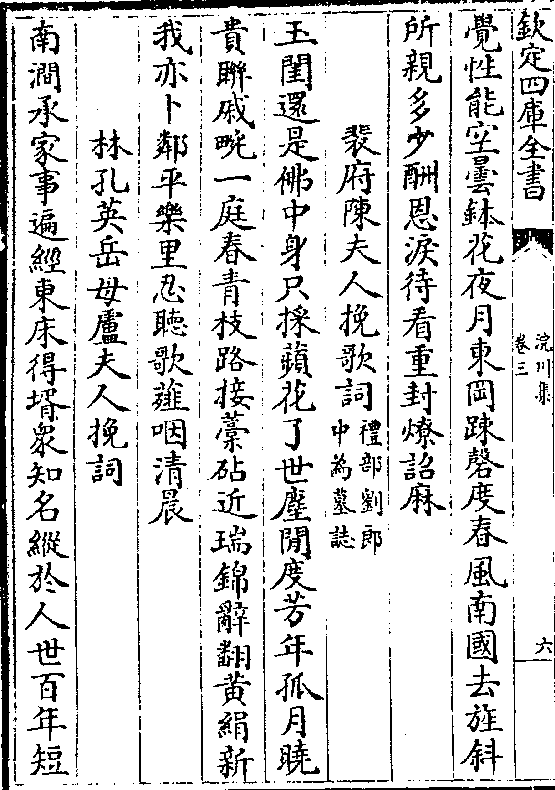 欽定四庫全書
浣川集
卷三
六
覺性能空曇鉢花夜月東岡踈磬度春風南國去旌斜
所親多少酬恩淚待看重封燎詔麻
裴府陳夫人挽歌詞禮部劉郎
中為墓誌
玉閨還是佛中身只採蘋花了世塵閒度芳年孤月曉
貴聯戚畹一庭春青枝路接藁砧近瑞錦辭翻黃絹新
我亦卜鄰平樂里忍聽歌薤咽清晨
林孔英岳母盧夫人挽詞
南澗承家事遍經東床得壻衆知名縱於人世百年短